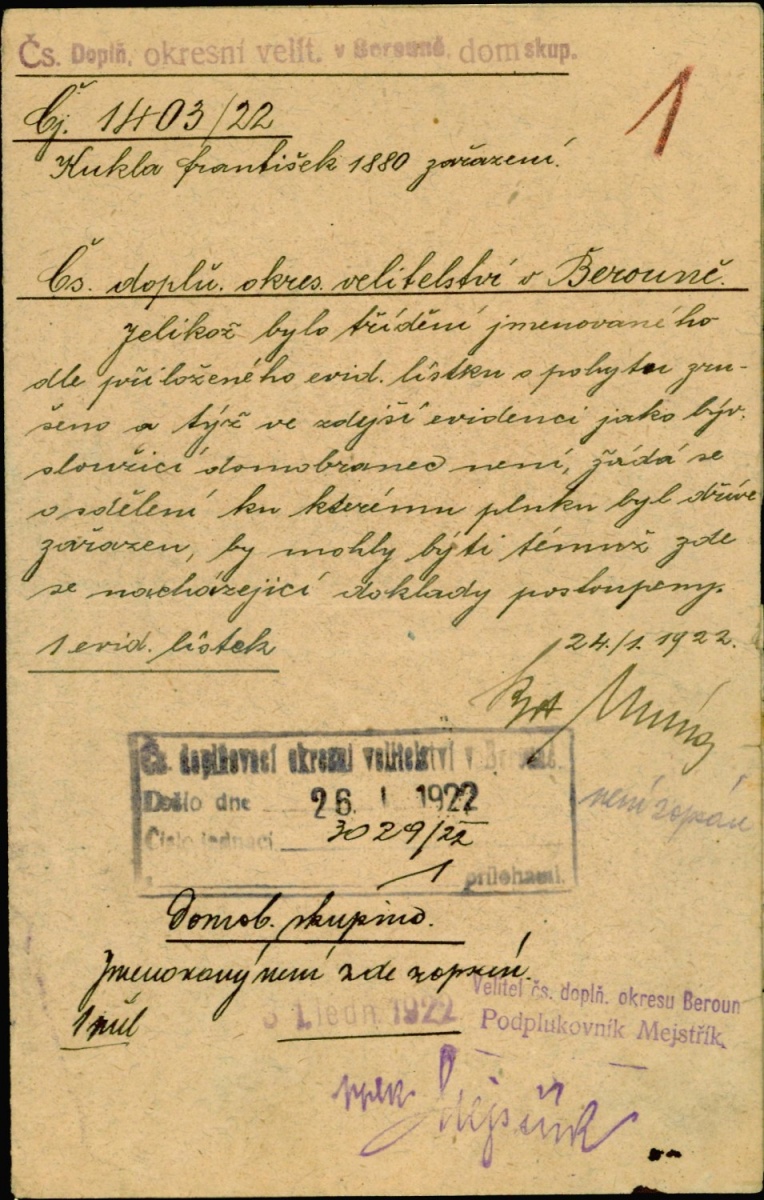 Čs. Doplň. okresní velit. v Berouně, dom skup.
1
Čj. 1403/22
Kukla František 1880 zařazení.
Čs. doplň. okres. velitelství v Berouně.
Jelikož bylo třídění jmenovaného
dle přiloženého evid. lístku o pobytu zru-
šeno a týž ve zdejší evidenci jako býv.
sloužící domobranec není, žádá se
o sdělení ku kterému pluku byl dříve
zařazen, by mohly býti témuž zde
se nacházející doklady postoupeny.
1 evid. lístek
24./1. 1922.
Čs. doplňovací okresní velitelství v Berouně.
Došlo dne 26 I 1922
není zapsán
Číslo jednací 3029/22
1 přílohami.
Domob. skupina.
Jmenovaný není zde zapsán.
Velitel čs. doplň. okresu Beroun
31. ledn. 1922
Podplukovník Mejstřík.
pplk. Mejstřík